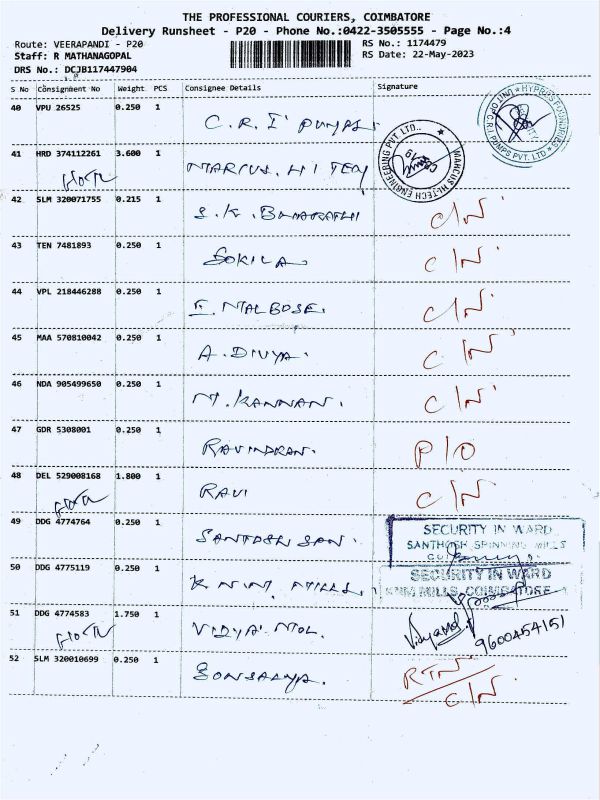 THE PROFESSIONAL COURIERS, COIMBATORE
Delivery Runsheet - P20 - Phone No.:0422-3505555 - Page No.:4
Route: VEERAPANDI - P20 RS No.: 1174479
Staff: R MATHANAGOPAL RS Date: 22-May-2023
DRS No.: DCJB117447904
S No Consignment No Weight PCS Consignee Details Signature
40 VPU 26525 0.250 1 C.R.I PUMPS
UNIT OF C.R.I. PUMPS PVT. LTD SECURITY
41 HRD 374112261 3.600 1 MARCUS. HI TECH
MARCUS HI-TECH ENGINEERING PVT. LTD.
42 SLM 320071755 0.215 1 S.K. BHARATHI C/N
43 TEN 7481893 0.250 1 GOKILA. C/N
44 VPL 218446288 0.250 1 C/N
45 MAA 570810042 0.250 1 A. DIVYA. C/N
46 NDA 905499650 0.250 1 M. KANNAN. C/N
47 GDR 5308001 0.250 1 RAVINDRAN. P/O
48 DEL 529008168 1.800 1 RAVI C/N
49 DDG 4774764 0.250 1 SANTOSH
SECURITY IN WARD
SANTHOSH SPINNING MILLS
50 DDG 4775119 0.250 1 MILLS.
SECURITY IN WARD
KNM MILLS, COIMBATORE
51 DDG 4774583 1.750 1 VIDYA
9600454151
52 SLM 320010699 0.250 1 RTN
C/N